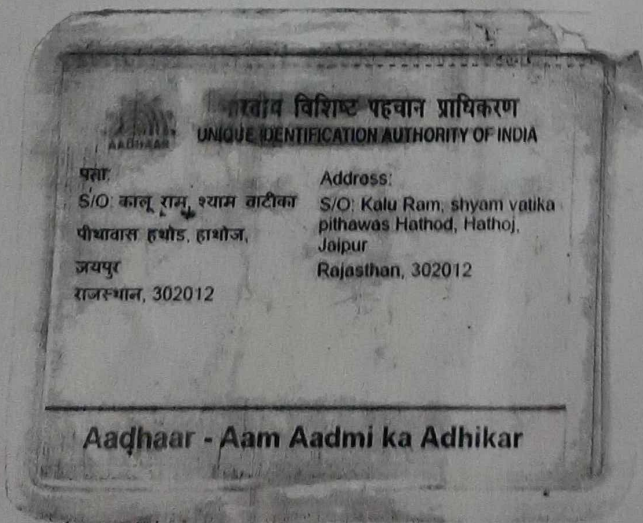 भारतीय विशिष्ट पहचान प्राधिकरण
UNIQUE IDENTIFICATION AUTHORITY OF INDIA
AADHAAR
पता:
S/O: कालू राम, श्याम वाटीका
पीथावास हथोड, हाथोज,
जयपुर
राजस्थान, 302012
Address:
S/O: Kalu Ram, shyam vatika
pithawas Hathod, Hathoj,
Jaipur
Rajasthan, 302012
Aadhaar - Aam Aadmi ka Adhikar